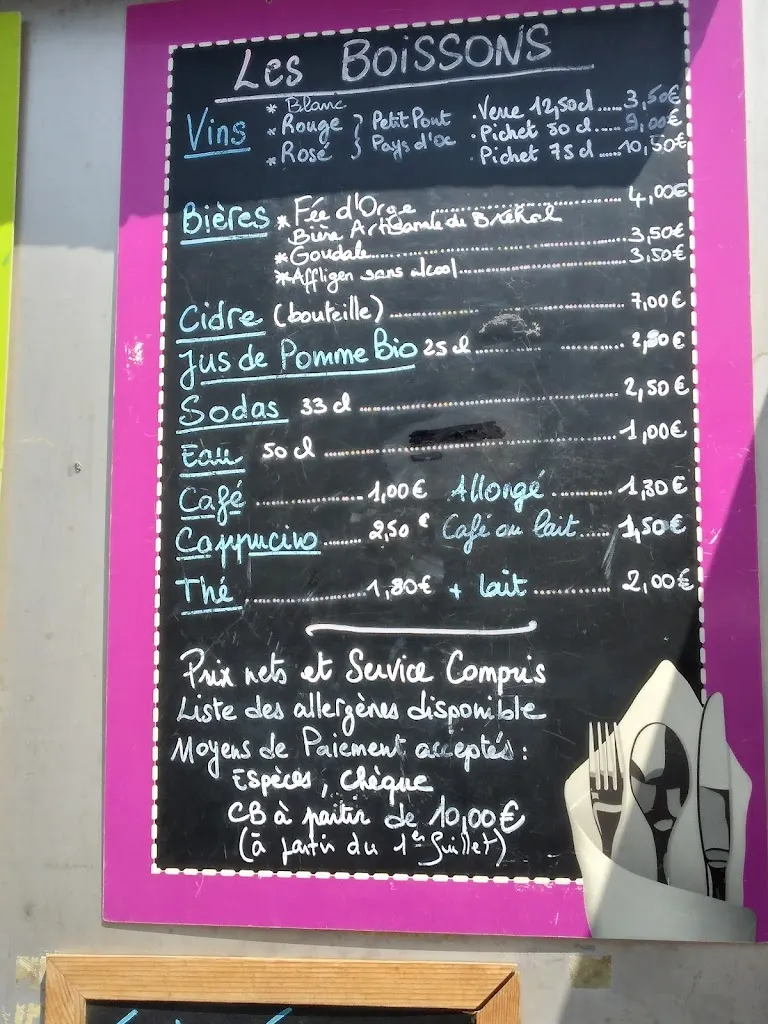 Les BOISSONS
Vins * Blanc * Rouge * Rosé } Petit Pont Pays d'oc
. Verre 12,50cl ...... 3,50€
. Pichet 50 cl ...... 9,00€
. Pichet 75 cl ...... 10,50€
Bières * Fée d'Orge ........ 4,00€
Bière Artisanale de Bréhal
* Goudale ........ 3,50€
* Affligen sans alcool ........ 3,50€
Cidre (bouteille) ........ 7,00€
Jus de Pomme Bio 25 cl ........ 2,80€
Sodas 33 cl ........ 2,50€
Eau 50 cl ........ 1,00€
Café ........ 1,00€ Allongé ........ 1,30€
Cappucino ...... 2,50€ Café au lait ..... 1,50€
Thé ........ 1,80€ + lait ........ 2,00€
Prix nets et Service Compris
Liste des allergènes disponible
Moyens de Paiement acceptés :
Espèces, Chèque
CB à partir de 10,00€
(à partir du 1er Juillet)